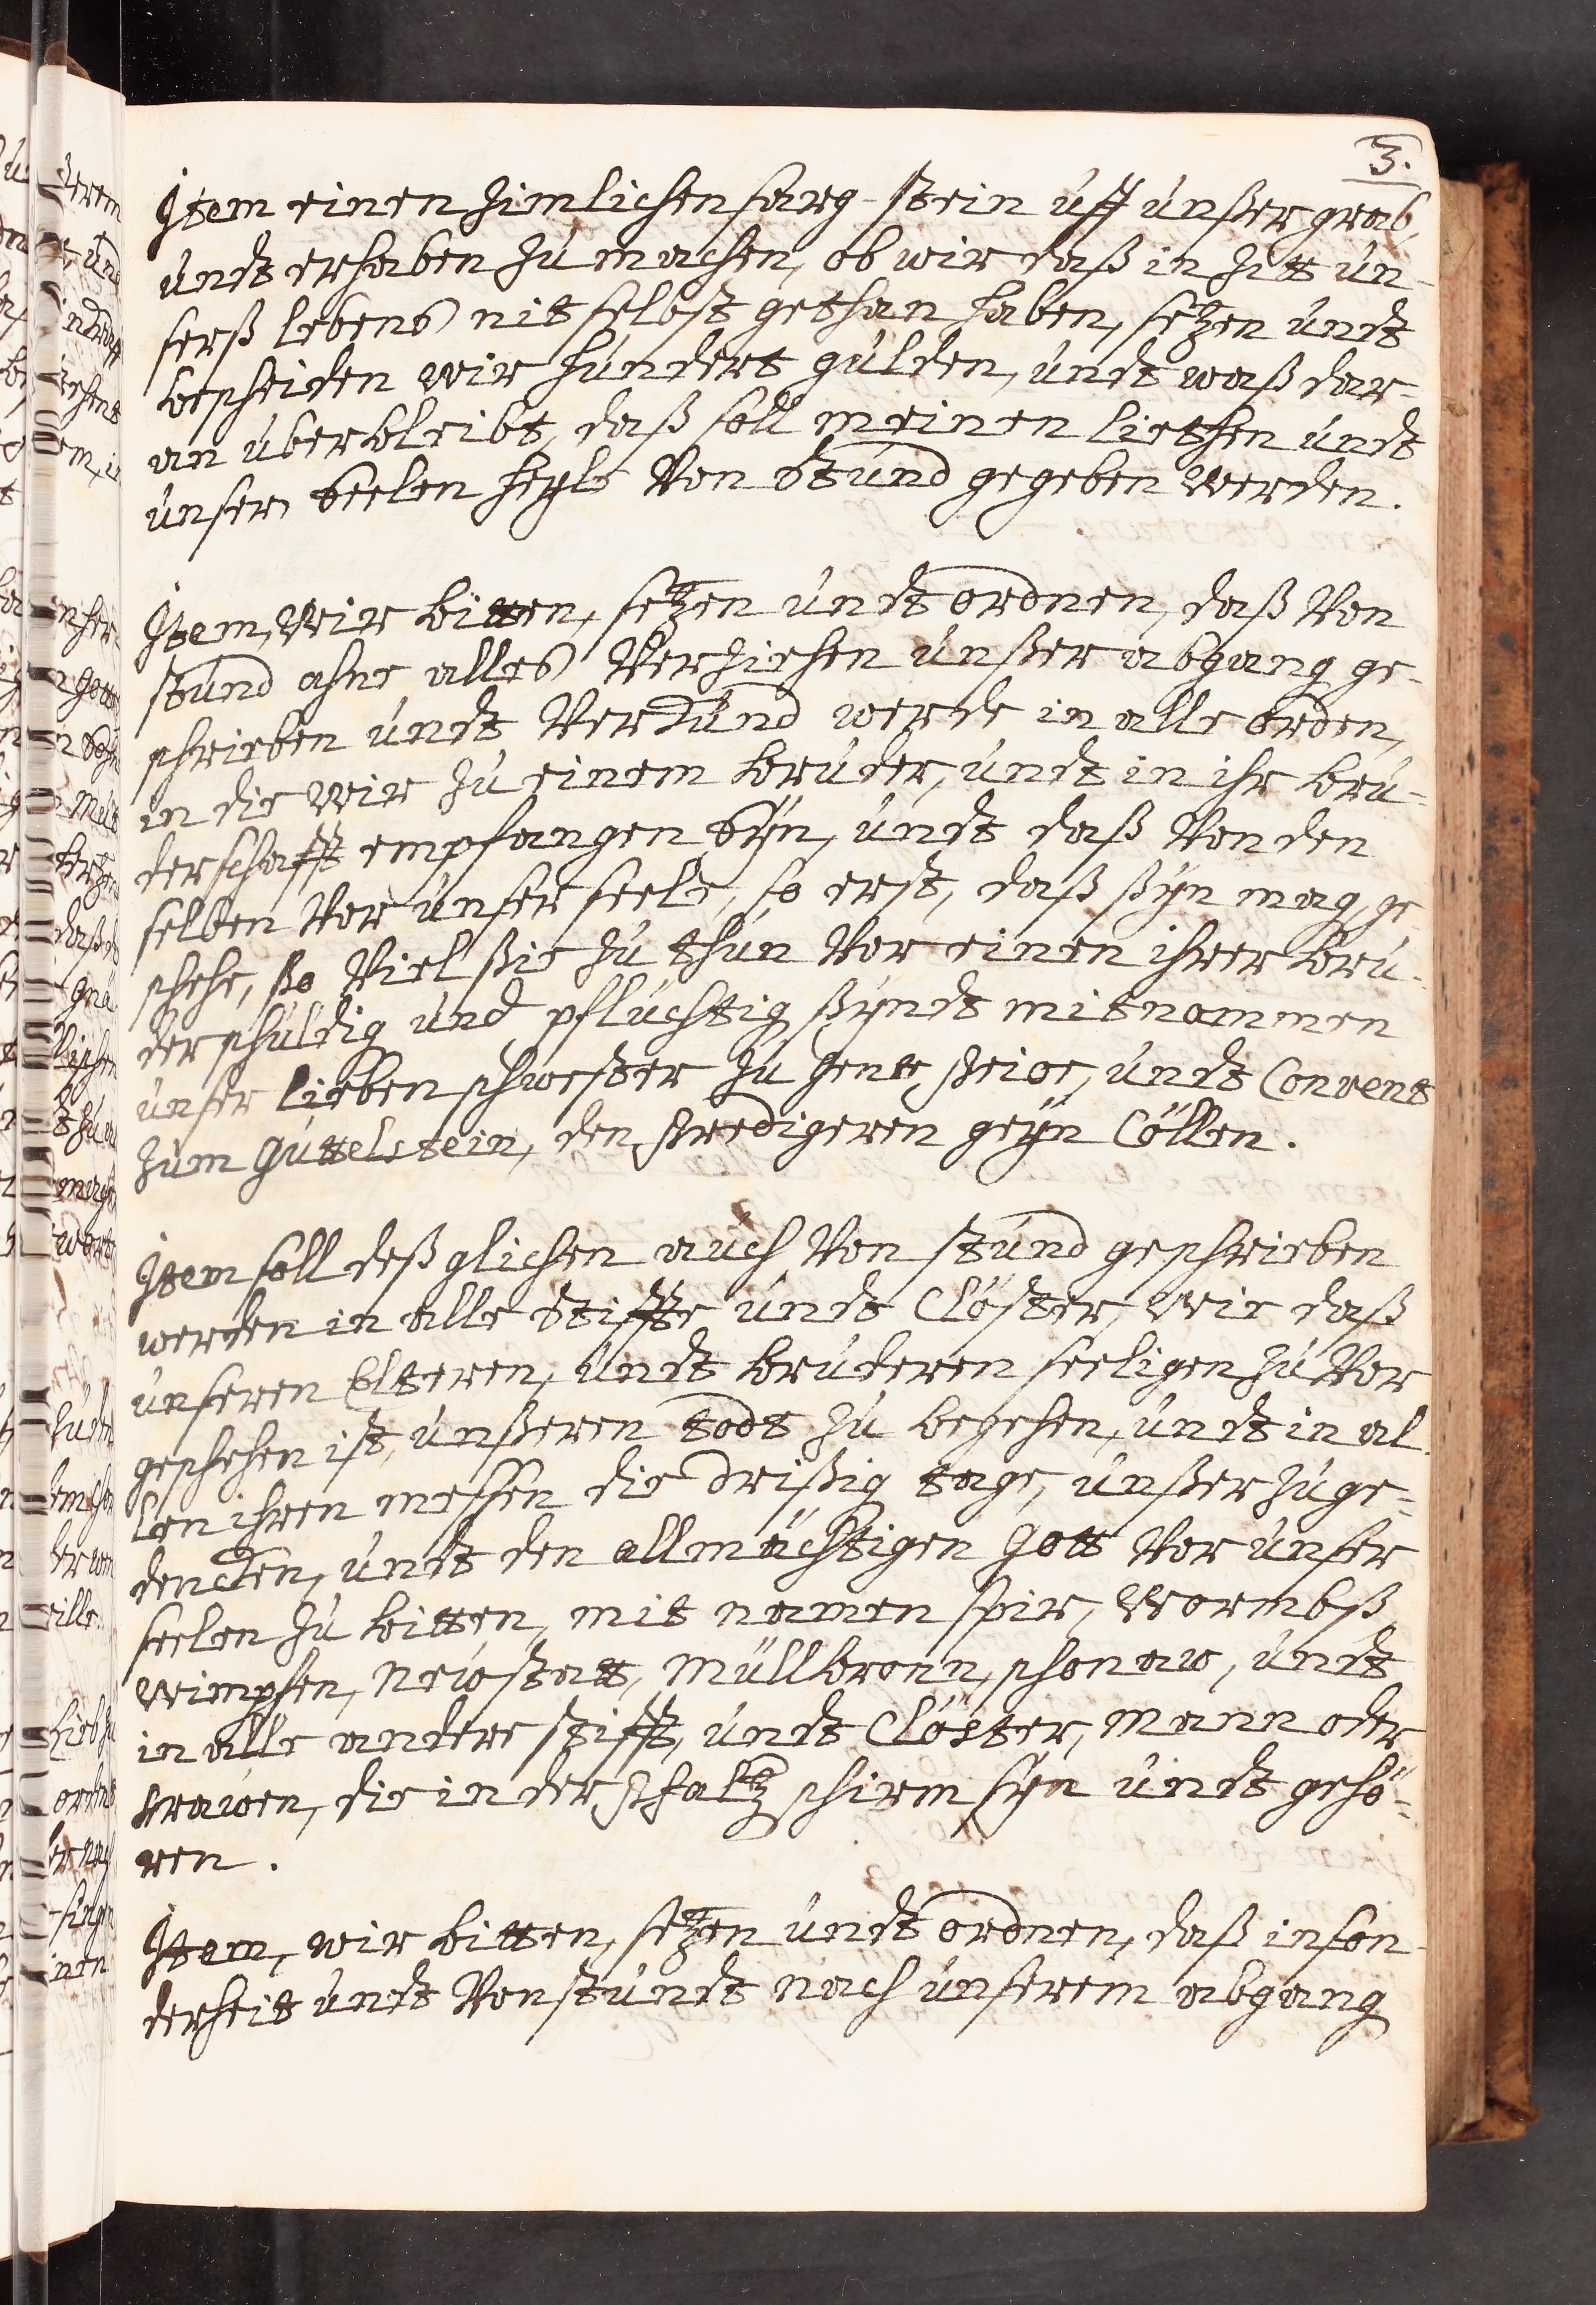 3.
Item einen zimlichen sarg-stein uff unßer grab,
undt erhaben zu machen, ob wir daß in zitt un-
serß lebens nit selbst gethan haben, setzen undt
bescheiden wir hundert gulden, undt waß dar-
an uberbleibt, daß soll meinen liethen undt
unser seelen heyls Von Stund gegeben werden.
Item, Wir bitten, setzen undt ordnen, daß Von
stund ahne alles Verziehen unßer abgang ge-
schrieben undt Verkund werde in alle orden,
in die Wir zu einem bruder, undt in ihr bru-
derschafft empfangen syn, undt daß Von den
selben Vor unser seele, so erst, daß ßyn mag, ge-
schehe, ßo Viel ßie zu thun Vor einen ihrer bru-
der schuldig und pfluchtig ßyndt mit nammen
unser lieben schwester zu Convent
zum Guttelstein, den Predigeren geyn Cöllen.
Item soll deßglichen auch Von stund geschrieben
werden in alle Stiffte undt Clöster, Wie daß
unseren Elteren, undt bruderen seeligen zu Vor
geschehen ist, unßeren todt zu begehen, undt in al-
len ihren messen die drißig tage, unßer zu ge-
dencken, undt den allmächtigen Gott Vor unser
seelen zu bitten, mit namen Spir, Wormbß,
Wimpfen, Newstatt, Müllbronn, schonaw, undt
in alle andere stifft, undt Clöster, Mann oder
Frawen, die in der Pfaltz schirm syn undt gehö-
ren.
Item, wir bitten, setzen undt ordnen, daß inson-
derheit undt Von stundt nach unserem abgang